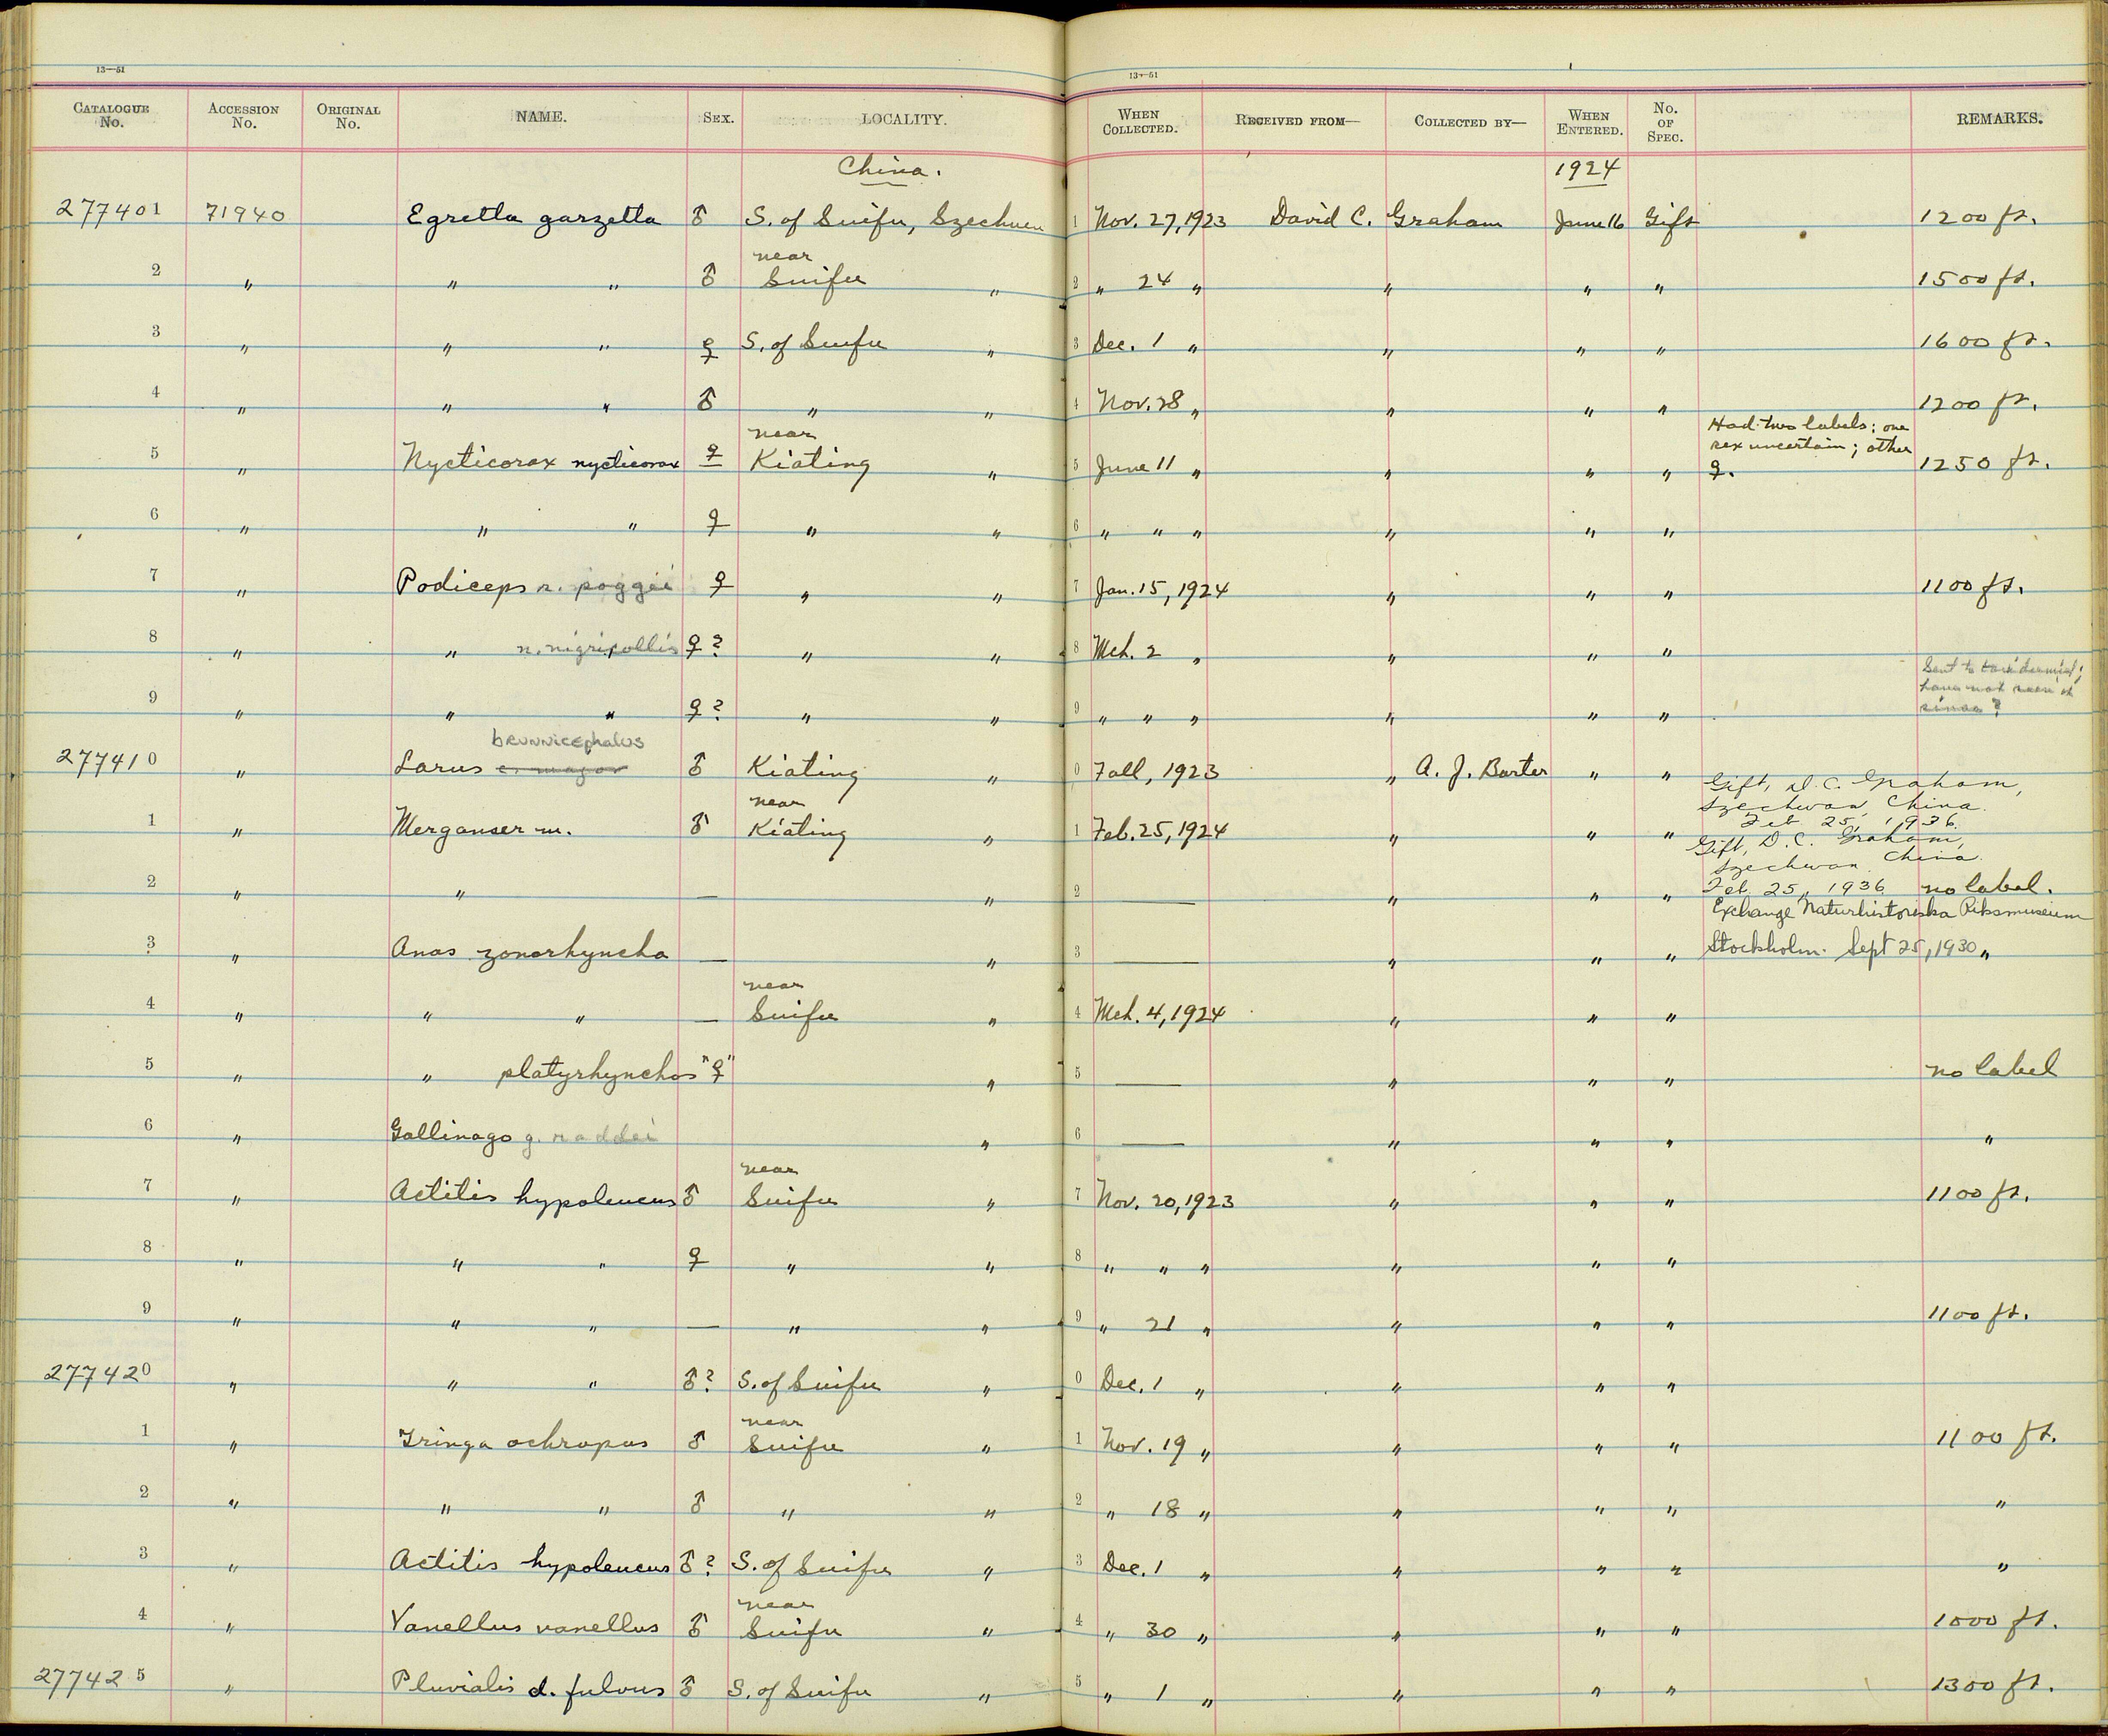 13—51 13—51
CATALOGUE No. ACCESSION No. ORIGINAL No. NAME. SEX. LOCALITY. WHEN COLLECTED. RECEIVED FROM— COLLECTED BY— WHEN ENTERED. No. OF SPEC. REMARKS.
China. 1924
277401 71940 Egretta garzetta ♂ S. of Suifu, Szechuen 1 Nov. 27, 1923 David C. Graham June 16 Gift 1200 ft.
near
2 " " " ♂ Suifu " 2 " 24 " " " " 1500 ft.
3 " " " ♀ S. of Suifu " 3 Dec. 1 " " " " 1600 ft.
4 " " " ♂ " " 4 Nov. 28 " " " " 1200 ft.
near Had two labels; one
sex uncertain; other
5 " Nycticorax nycticorax ♀ Kiating " 5 June 11 " " " " ♀. 1250 ft.
6 " " " ♀ " " 6 " " " " " "
7 " Podiceps r. poggei ♀ " " 7 Jan. 15, 1924 " " " 1100 ft.
8 " " n. nigricollis ♀? " " 8 Mch. 2 " " " "
Sent to
have not seen it
9 " " " ♀? " " 9 " " " " " "
brunnicephalus
277410 " Larus c. major ♂ Kiating " 0 Fall, 1923 " A. J. Barter " "
Gift, D. C. Graham,
near Szechwan, China.
1 " Merganser m. ♂ Kiating " 1 Feb. 25, 1924 " " " Feb. 25, 1936.
Gift, D. C. Graham,
Szechwan China.
2 " " — " 2 — " " " Feb. 25, 1936 no label.
Exchange Naturhistoriska Riksmuseum
3 " Anas zonorhyncha — " 3 — " " " Stockholm. Sept 25, 1930 "
near
4 " " " — Suifu " 4 Mch. 4, 1924 " " "
5 " " platyrhynchos "♀" " 5 — " " " no label
6 " Gallinago g. raddei " 6 — " " " "
near
7 " Actitis hypoleucus ♂ Suifu " 7 Nov. 20, 1923 " " " 1100 ft.
8 " " " ♀ " " 8 " " " " " "
9 " " " — " " 9 " 21 " " " " 1100 ft.
277420 " " " ♂? S. of Suifu " 0 Dec. 1 " " " "
near
1 " Tringa ochropus ♂ Suifu " 1 Nov. 19 " " " " 1100 ft.
2 " " " ♂ " " 2 " 18 " " " " "
3 " Actitis hypoleucus ♂? S. of Suifu " 3 Dec. 1 " " " " "
near
4 " Vanellus vanellus ♂ Suifu " 4 " 30 " " " " 1000 ft.
277425 " Pluvialis d. fulvus ♂ S. of Suifu " 5 " 1 " " " " 1300 ft.